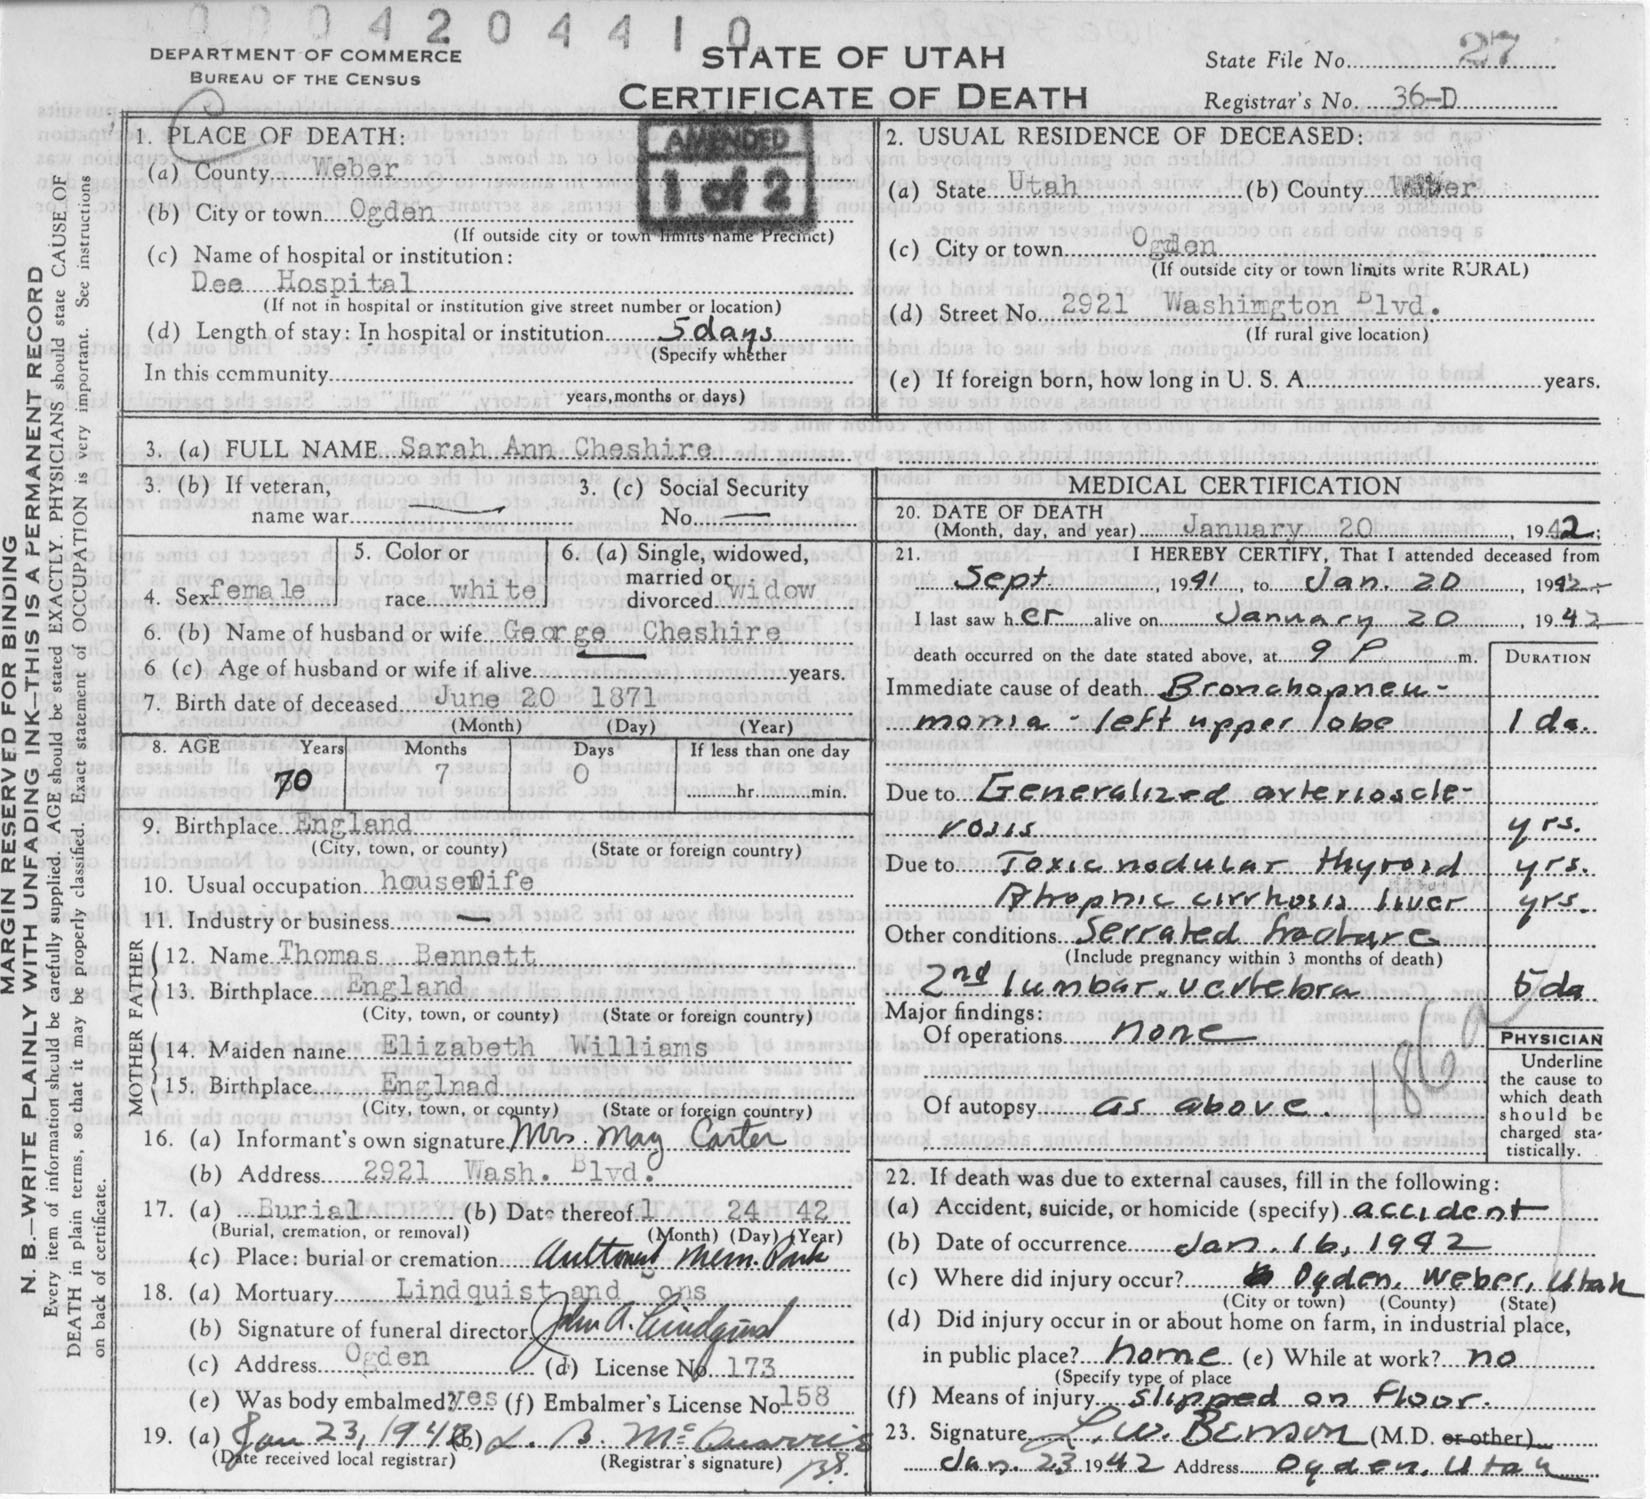 0004204410
DEPARTMENT OF COMMERCE
BUREAU OF THE CENSUS
STATE OF UTAH
CERTIFICATE OF DEATH
State File No. 27
Registrar's No. 36-D
AMENDED
1 of 2
MARGIN RESERVED FOR BINDING
N. B.—WRITE PLAINLY WITH UNFADING INK—THIS IS A PERMANENT RECORD
Every item of information should be carefully supplied. AGE should be stated EXACTLY. PHYSICIANS should state CAUSE OF
DEATH in plain terms, so that it may be properly classified. Exact statement of OCCUPATION is very important. See instructions
on back of certificate.
1. PLACE OF DEATH:
(a) County Weber
(b) City or town Ogden
(If outside city or town limits name Precinct)
(c) Name of hospital or institution:
Dee Hospital
(If not in hospital or institution give street number or location)
(d) Length of stay: In hospital or institution 5 days
(Specify whether
In this community
years, months or days)
2. USUAL RESIDENCE OF DECEASED:
(a) State Utah (b) County Weber
(c) City or town Ogden
(If outside city or town limits write RURAL)
(d) Street No. 2921 Washington Blvd.
(If rural give location)
(e) If foreign born, how long in U. S. A. years.
3. (a) FULL NAME Sarah Ann Cheshire
3. (b) If veteran,
name war —
3. (c) Social Security
No. —
4. Sex female
5. Color or
race white
6. (a) Single, widowed,
married or
divorced widow
6. (b) Name of husband or wife George Cheshire
6 (c) Age of husband or wife if alive years.
7. Birth date of deceased June 20 1871
(Month) (Day) (Year)
8. AGE Years Months Days If less than one day
70 7 0 hr. min.
9. Birthplace England
(City, town, or county) (State or foreign country)
10. Usual occupation housewife
11. Industry or business —
FATHER
12. Name Thomas Bennett
13. Birthplace England
(City, town, or county) (State or foreign country)
MOTHER
14. Maiden name Elizabeth Williams
15. Birthplace Englnad
(City, town, or county) (State or foreign country)
16. (a) Informant's own signature Mrs. May Carter
(b) Address 2921 Wash. Blvd.
17. (a) Burial (b) Date thereof 1 24 42
(Burial, cremation, or removal) (Month) (Day) (Year)
(c) Place: burial or cremation Aultorest Mem. Park
18. (a) Mortuary Lindquist and ons
(b) Signature of funeral director John A. Lindquist
(c) Address Ogden (d) License No. 173
(e) Was body embalmed? yes (f) Embalmer's License No. 158
19. (a) Jan 23, 1942 (b) L. B. McQuarrie
(Date received local registrar) (Registrar's signature)
MEDICAL CERTIFICATION
20. DATE OF DEATH
(Month, day, and year) January 20, 1942;
21. I HEREBY CERTIFY, That I attended deceased from
Sept., 1941, to Jan. 20, 1942
I last saw her alive on January 20, 1942
death occurred on the date stated above, at 9 P m.
DURATION
Immediate cause of death Bronchopneu-
monia - left upper lobe 1 da.
Due to Generalized arterioscle-
rosis yrs.
Due to Toxic nodular thyroid yrs.
Atrophic cirrhosis liver yrs.
Other conditions Serrated fracture
(Include pregnancy within 3 months of death)
2nd lumbar vertebra 5 da
Major findings:
Of operations none
186a
Of autopsy as above.
PHYSICIAN
Underline
the cause to
which death
should be
charged sta-
tistically.
22. If death was due to external causes, fill in the following:
(a) Accident, suicide, or homicide (specify) accident
(b) Date of occurrence Jan. 16, 1942
(c) Where did injury occur? Ogden, Weber, Utah
(City or town) (County) (State)
(d) Did injury occur in or about home on farm, in industrial place,
in public place? home (e) While at work? no
(Specify type of place
(f) Means of injury slipped on floor.
23. Signature L. W. Benson (M.D. or other)
Jan. 23 1942 Address Ogden, Utah